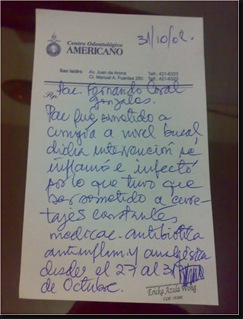 31/10/02.
Centro Odontológico
AMERICANO
San Isidro Av. Juan de Arona
Cl. Manuel A. Fuentes
Pac. Fernando Coral
Gonzales.
Pac fue sometido a
cirugía a nivel bucal
dicha intervención se
inflamó e infectó
por lo que tuvo que
ser sometido a cure
tajes constantes
medicac. antibiótica
antiinflam. y analgésica
desde el 27 al 31
de Octubre.